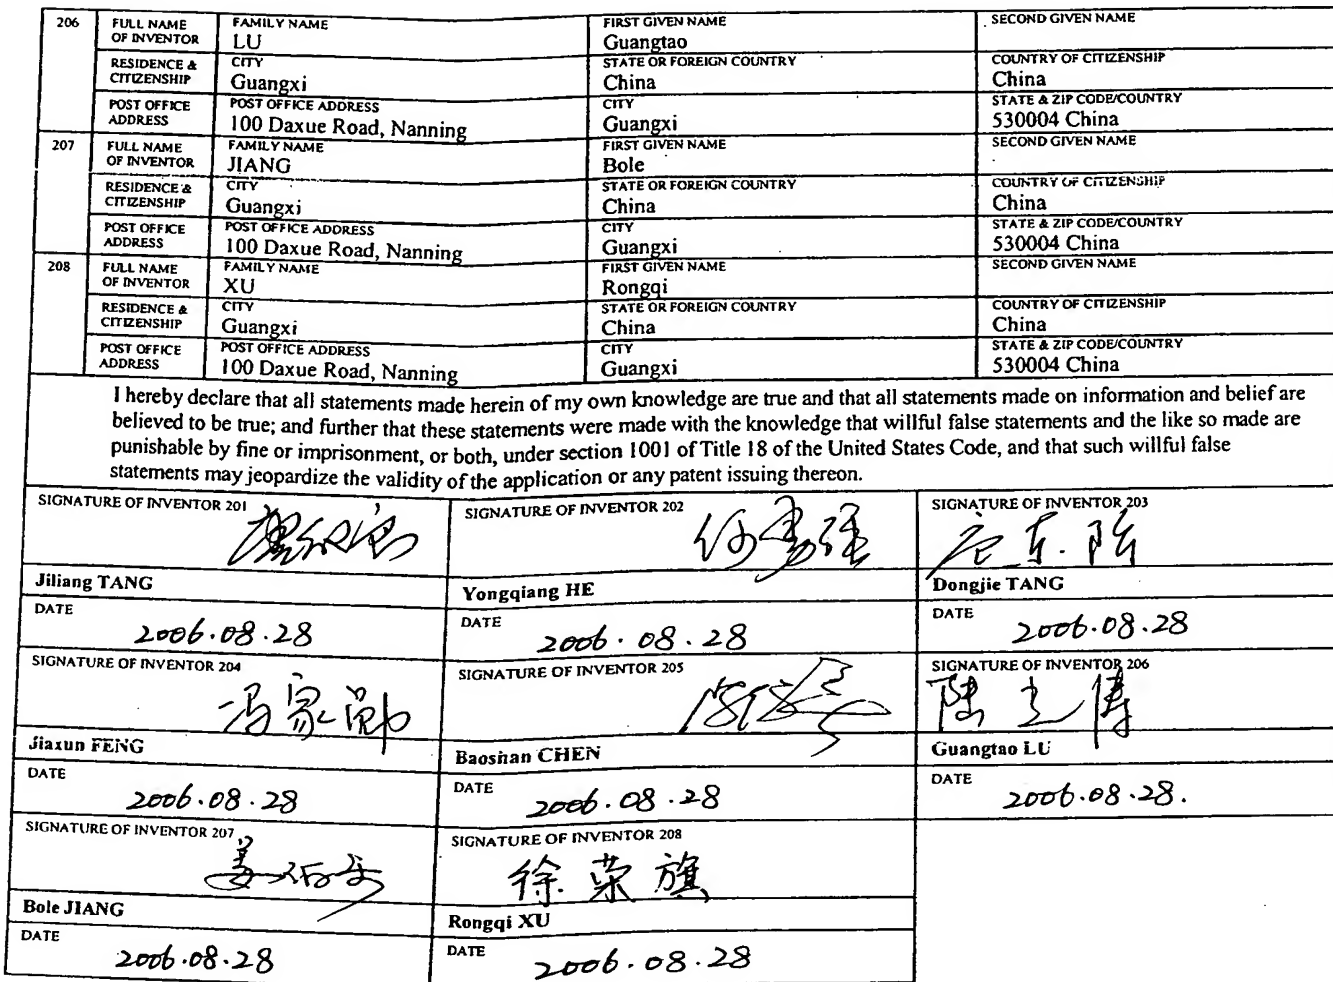 206 FULL NAME OF INVENTOR FAMILY NAME LU FIRST GIVEN NAME Guangtao SECOND GIVEN NAME
RESIDENCE & CITIZENSHIP CITY Guangxi STATE OR FOREIGN COUNTRY China COUNTRY OF CITIZENSHIP China
POST OFFICE ADDRESS POST OFFICE ADDRESS 100 Daxue Road, Nanning CITY Guangxi STATE & ZIP CODE/COUNTRY 530004 China
207 FULL NAME OF INVENTOR FAMILY NAME JIANG FIRST GIVEN NAME Bole SECOND GIVEN NAME
RESIDENCE & CITIZENSHIP CITY Guangxi STATE OR FOREIGN COUNTRY China COUNTRY OF CITIZENSHIP China
POST OFFICE ADDRESS POST OFFICE ADDRESS 100 Daxue Road, Nanning CITY Guangxi STATE & ZIP CODE/COUNTRY 530004 China
208 FULL NAME OF INVENTOR FAMILY NAME XU FIRST GIVEN NAME Rongqi SECOND GIVEN NAME
RESIDENCE & CITIZENSHIP CITY Guangxi STATE OR FOREIGN COUNTRY China COUNTRY OF CITIZENSHIP China
POST OFFICE ADDRESS POST OFFICE ADDRESS 100 Daxue Road, Nanning CITY Guangxi STATE & ZIP CODE/COUNTRY 530004 China
I hereby declare that all statements made herein of my own knowledge are true and that all statements made on information and belief are
believed to be true; and further that these statements were made with the knowledge that willful false statements and the like so made are
punishable by fine or imprisonment, or both, under section 1001 of Title 18 of the United States Code, and that such willful false
statements may jeopardize the validity of the application or any patent issuing thereon.
SIGNATURE OF INVENTOR 201 SIGNATURE OF INVENTOR 202 SIGNATURE OF INVENTOR 203
何勇强
Jiliang TANG Yongqiang HE Dongjie TANG
DATE 2006.08.28 DATE 2006.08.28 DATE 2006.08.28
SIGNATURE OF INVENTOR 204 SIGNATURE OF INVENTOR 205 SIGNATURE OF INVENTOR 206
冯家勋
Jiaxun FENG Baoshan CHEN Guangtao LU
DATE 2006.08.28 DATE 2006.08.28 DATE 2006.08.28.
SIGNATURE OF INVENTOR 207 SIGNATURE OF INVENTOR 208
徐荣旗
Bole JIANG Rongqi XU
DATE 2006.08.28 DATE 2006.08.28